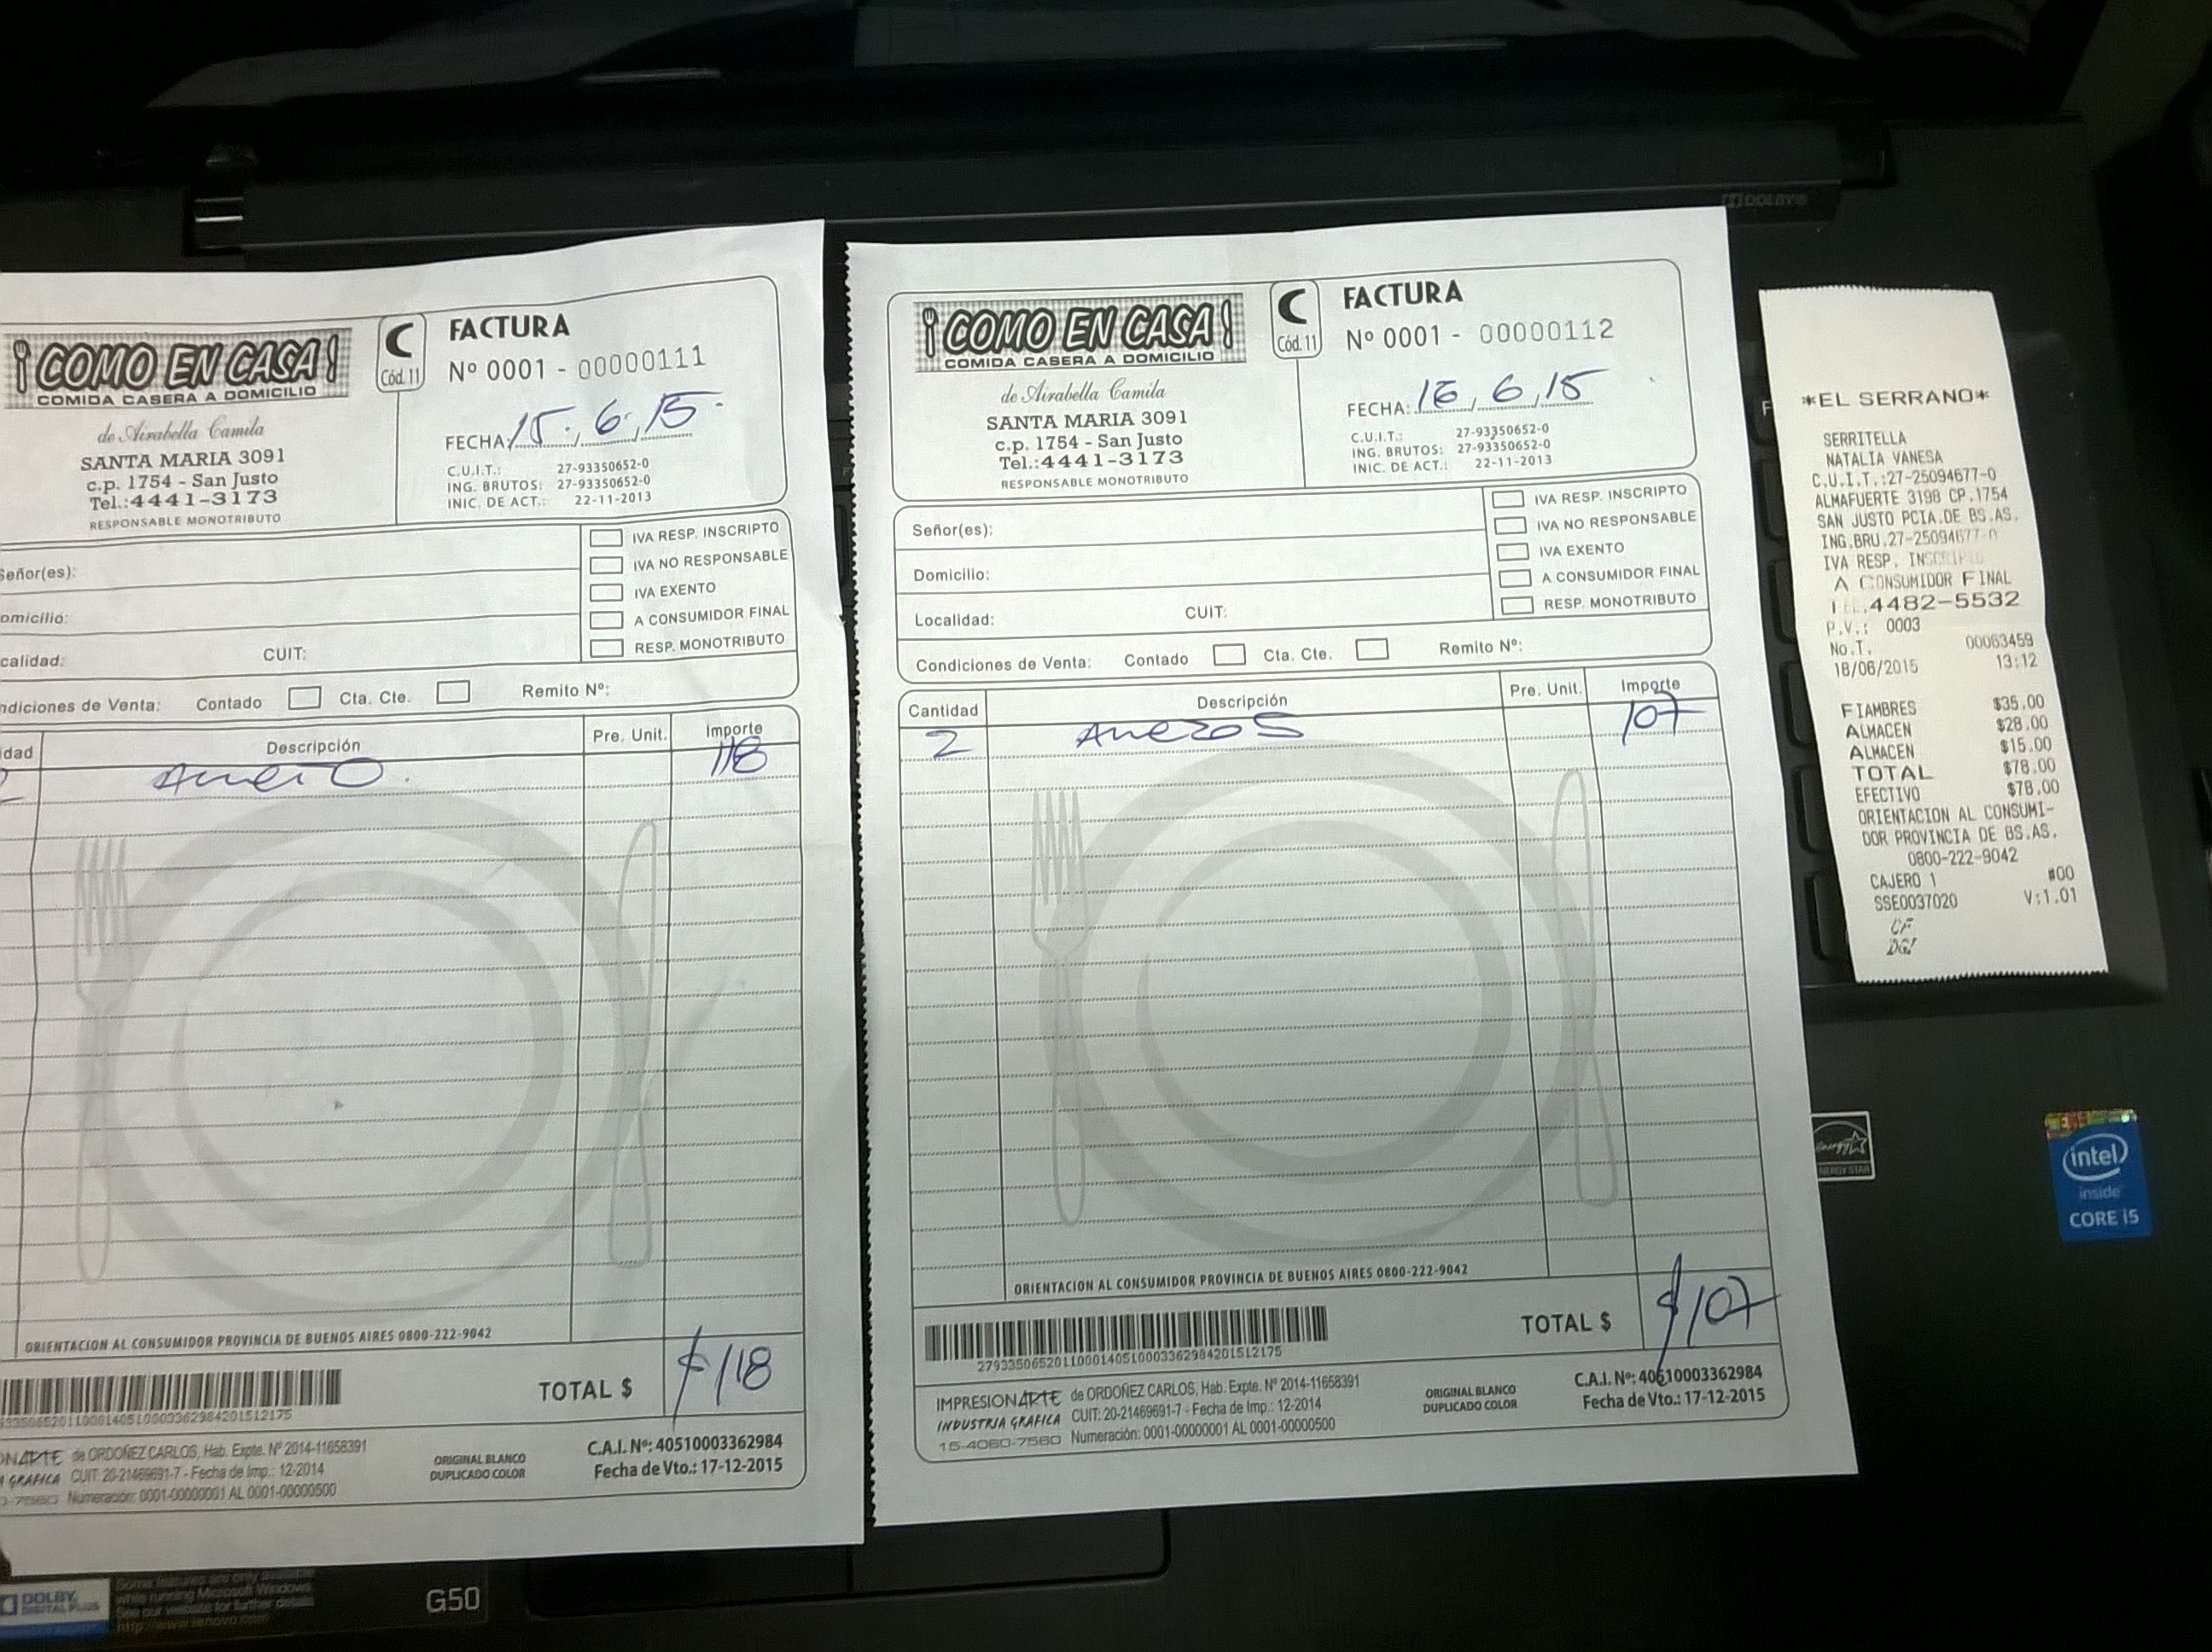 DOLBY
¡COMO EN CASA!
COMIDA CASERA A DOMICILIO
de Airabella Camila
SANTA MARIA 3091
c.p. 1754 - San Justo
Tel.:4441-3173
RESPONSABLE MONOTRIBUTO
C
Cód. 11
FACTURA
Nº 0001 - 00000111
FECHA: 15, 6, 15
C.U.I.T.: 27-93350652-0
ING. BRUTOS: 27-93350652-0
INIC. DE ACT.: 22-11-2013
IVA RESP. INSCRIPTO
IVA NO RESPONSABLE
IVA EXENTO
A CONSUMIDOR FINAL
RESP. MONOTRIBUTO
eñor(es):
omicilio:
calidad: CUIT:
ndiciones de Venta: Contado Cta. Cte. Remito Nº:
idad Descripción Pre. Unit. Importe
118
ORIENTACION AL CONSUMIDOR PROVINCIA DE BUENOS AIRES 0800-222-9042
TOTAL $ $118
33506520110001405100033629842015121​75
ONARTE de ORDOÑEZ CARLOS, Hab. Expte. Nº 2014-11658391
GRAFICA CUIT: 20-21469691-7 - Fecha de Imp.: 12-2014
-7580 Numeración: 0001-00000001 AL 0001-00000500
ORIGINAL BLANCO
DUPLICADO COLOR
C.A.I. Nº: 40510003362984
Fecha de Vto.: 17-12-2015
¡COMO EN CASA!
COMIDA CASERA A DOMICILIO
de Airabella Camila
SANTA MARIA 3091
c.p. 1754 - San Justo
Tel.:4441-3173
RESPONSABLE MONOTRIBUTO
C
Cód. 11
FACTURA
Nº 0001 - 00000112
FECHA: 16, 6, 15
C.U.I.T.: 27-93350652-0
ING. BRUTOS: 27-93350652-0
INIC. DE ACT.: 22-11-2013
IVA RESP. INSCRIPTO
IVA NO RESPONSABLE
IVA EXENTO
A CONSUMIDOR FINAL
RESP. MONOTRIBUTO
Señor(es):
Domicilio:
Localidad: CUIT:
Condiciones de Venta: Contado Cta. Cte. Remito Nº:
Cantidad Descripción Pre. Unit. Importe
2 107
ORIENTACION AL CONSUMIDOR PROVINCIA DE BUENOS AIRES 0800-222-9042
TOTAL $ $107
2793350652011000140510003362984201512175
IMPRESIONARTE de ORDOÑEZ CARLOS, Hab. Expte. Nº 2014-11658391
INDUSTRIA GRAFICA CUIT: 20-21469691-7 - Fecha de Imp.: 12-2014
15-4060-7580 Numeración: 0001-00000001 AL 0001-00000500
ORIGINAL BLANCO
DUPLICADO COLOR
C.A.I. Nº: 40510003362984
Fecha de Vto.: 17-12-2015
*EL SERRANO*
SERRITELLA
NATALIA VANESA
C.U.I.T.:27-25094677-0
ALMAFUERTE 3198 CP.1754
SAN JUSTO PCIA.DE BS.AS.
ING.BRU.27-25094677-0
IVA RESP. INSCRIPTO
A CONSUMIDOR FINAL
4482-5532
P.V.: 0003
No.T. 00063459
18/06/2015 13:12
FIAMBRES $35.00
ALMACEN $28.00
ALMACEN $15.00
TOTAL $78.00
EFECTIVO $78.00
ORIENTACION AL CONSUMI-
DOR PROVINCIA DE BS.AS.
0800-222-9042
CAJERO 1 #00
SSE0037020 V:1.01
CF
DGI
energy
ENERGY STAR
intel
inside
CORE i5
DOLBY
DIGITAL PLUS
Some features are only available
while running Microsoft Windows
See our website for further details
http://www.lenovo.com
G50